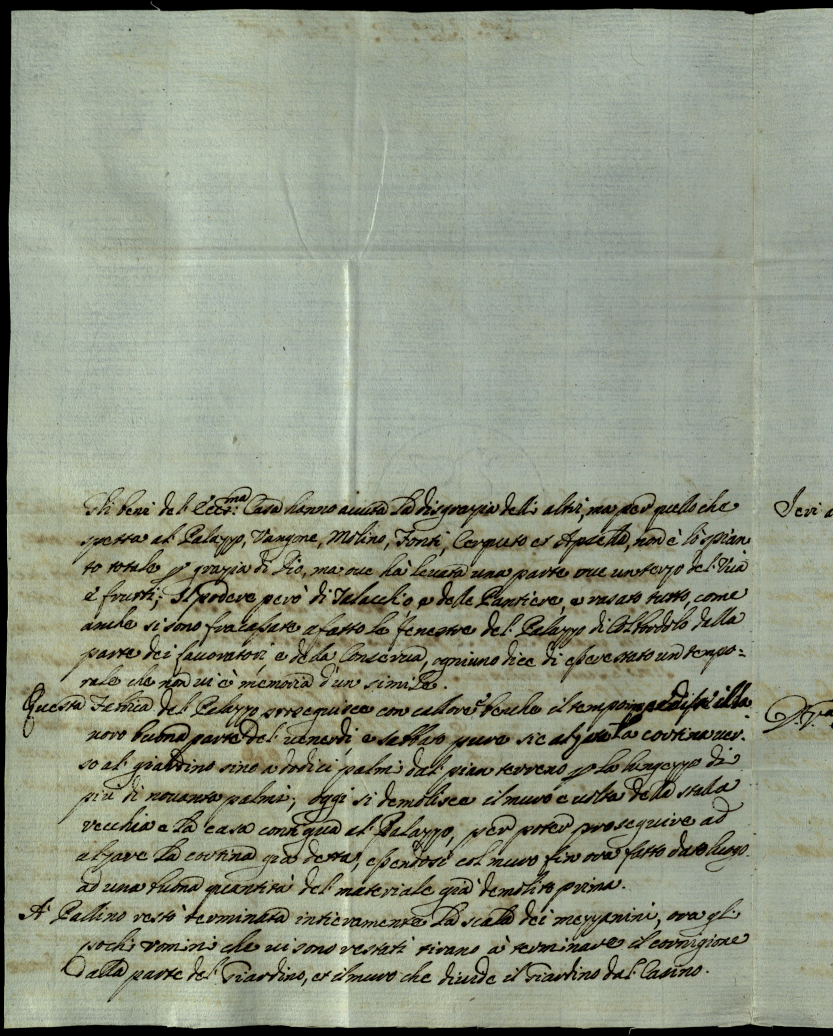 Gli beni del Ecc:ma Casa hanno avuta la disgrazia delli altri, ma per quello che
spetta al Palazzo, Vangone, Molino, Fonti, Cerqueto et Apsella, non è lo spian
to totale p grazia di Dio, ma ove hà levata una parte ove un terzo del Vua
e frutti; Il podere però di Talacchio e delle Pantiere, e rasato tutto, come
anche si sono fracassate afatto le fenestre del Palazzo di Colbordolo dalla
parte dei lavoratori e della Conserva, ogniuno dice di essere stato un tempo=
rale che non vi è memoria d'un simile.
Questa Fabrica del Palazzo proseguisce con calore, benche il tempo
novo buona parte del venerdi, e sabbato pure sie alzata la cortina ver.
so al giardino sino a dodici palmi dal pian terreno p la lungezza di
più di novanta palmi, oggi si demolisce il muro e volta della stalla
vecchia e la casa contigua al Palazzo, per poter proseguire ad
alzare la cortina già detta, essendosi col muro fin ora fatto dato luogo
ad una buona quantità del materiale già demolito prima.
A Pallino restò terminata intieramente la scala dei mezzanini, ora gl
pochi uomini che vi sono restati tirano à terminare il cornigione
dalla parte del Giardino, et il muro che divide il Giardino dal Casino.
Ieri